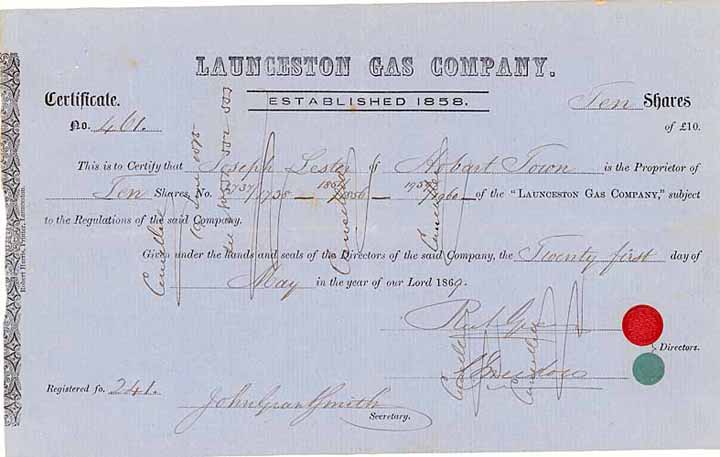 LAUNCESTON GAS COMPANY.
ESTABLISHED 1858.
Certificate.
Ten Shares
No. 461.
of £10.
This is to Certify that Joseph Lester of Hobart Town is the Proprietor of
Ten Shares, No. 1737/1738 — 1856 — 1960 — of the "LAUNCESTON GAS COMPANY," subject
to the Regulations of the said Company.
Given under the hands and seals of the Directors of the said Company, the Twenty first day of
May in the year of our Lord 1869.
Directors.
Registered fo. 241.
John Grant Smith
Secretary.
Robert Harris, Printer, Launceston.
Cancelled
Cancelled
Cancelled
Cancelled
Cancelled